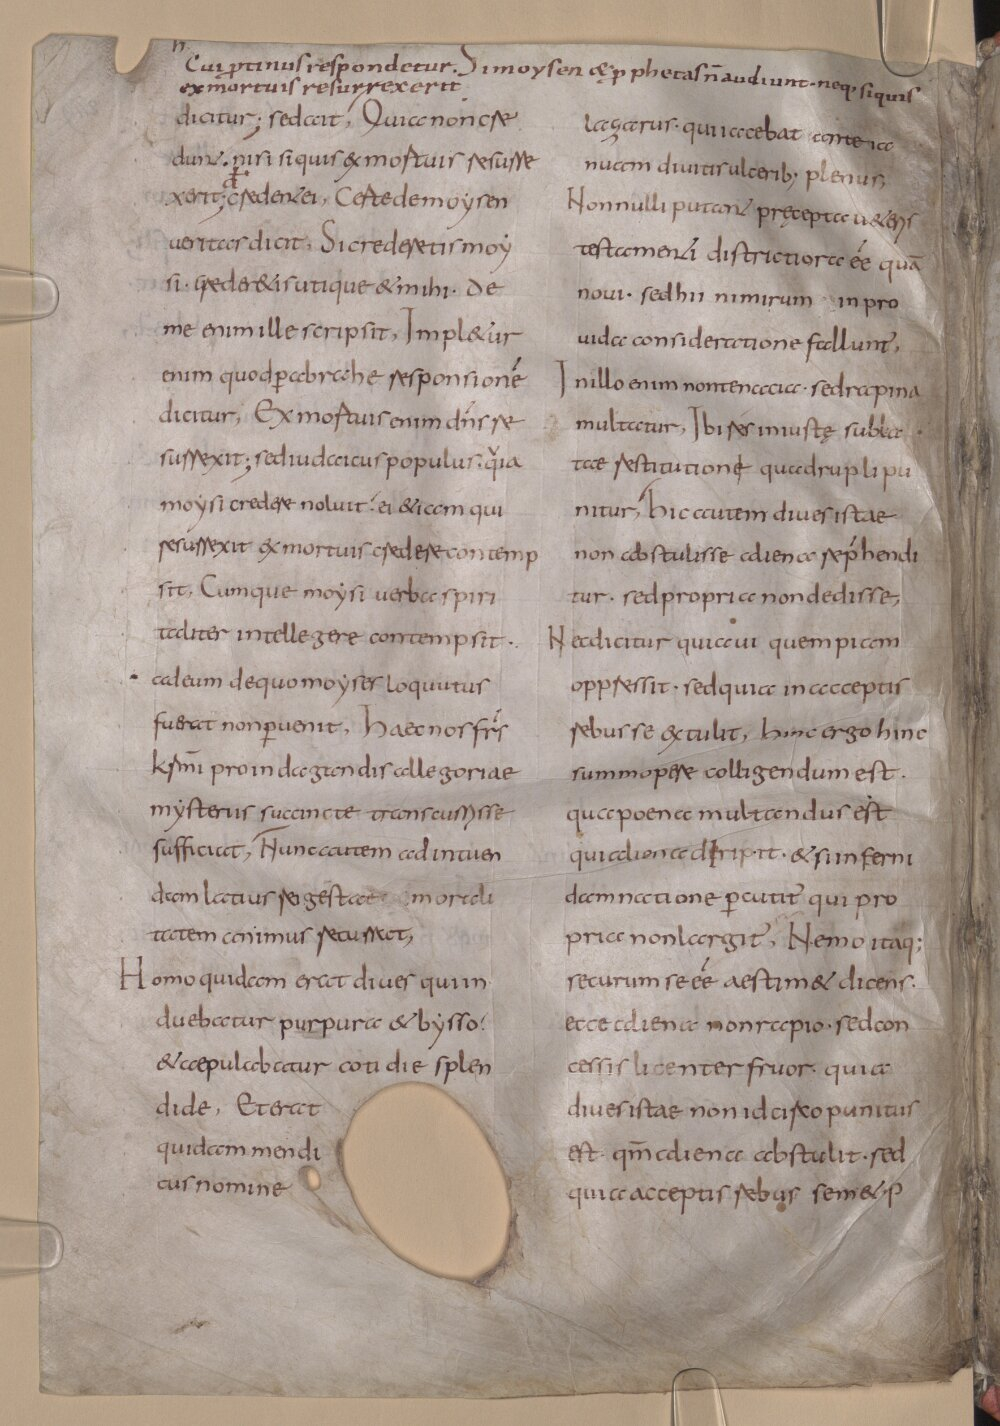 Cui ꝓtinus respondetur. Si moysen & ꝓphetas n̄ audiunt. neq; si quis
ex mortuis resurrexerit
dicitur; sed ait, Quia non cre
dunt. nisi si quis ex mortuis resurre
xerit; credent ei, Certe de moysen
ueritas dicit, Si crederetis moy
si. crederetis utique & mihi. De
me enim ille scripsit, Impl&ur
enim quod ꝑ abrahe responsionē
dicitur, Ex mortuis enim dn̄s re
surrexit; sed iudaicus populus. quia
moysi credere noluit. ei &iam qui
resurrexit ex mortuis credere contemp
sit, Cumque moysi uerba spiri
taliter intellegere contempsit.
ad eum de quo moyses loquutus
fuerat non ꝑuenit, Haec nos frs̄
krm̄i pro indagandis allegoriae
mysteriis succincte transcurrisse
sufficiat, Nunc autem ad intuen
dam latius rei gestae morali
tatem animus recurrat,
Homo quidam erat diues qui in
duebatur purpura & bysso.
& aepulabatur cotidie splen
dide, Et erat
quidam mendi
cus nomine
lazarus. qui iacebat ante ia
nuam diuitis ulcerib; plenus,
Nonnulli putant pręcepta ueteris
testamenti districtiora eē quā
noui. sed hii nimirum in pro
uida consideratione falluntˉ,
In illo enim non tenacia. sed rapina
multatur, Ibi res iniustę subla
tae restitutione quadrupli pu
nitur, Hic autem diues istae
non abstulisse aliena rep̄hendi
tur. sed propria non dedisse,
Nec dicitur quia ui quempiam
oppressit. sed quia in acceptis
rebus se extulit, hinc ergo hinc
summopere colligendum est.
qua poena multandus est
qui aliena diripit. & si inferni
damnatione ꝑcutitˉ qui pro
pria non largitˉ, Nemo itaq;
securum se eē aestim& dicens.
ecce aliena non rapio. sed con
cessis licenter fruor. quia
diues istae non idcirco punitus
est. qm̄ aliena abstulit. sed
quia acceptis rebus sem&ip